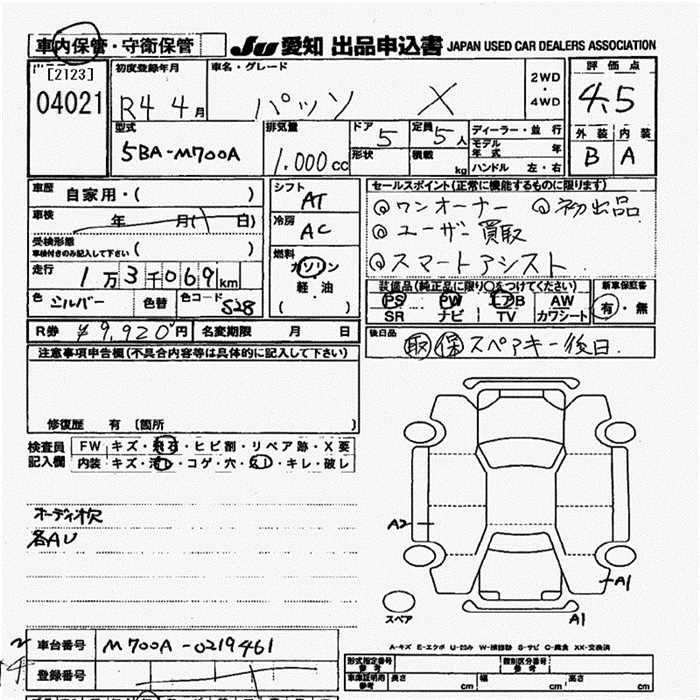 車内保管・守衛保管 JU 愛知 出品申込書 JAPAN USED CAR DEALERS ASSOCIATION
[2123] 初度登録年月 車名・グレード 2WD・4WD 評価点
04021 R4 4月 パッソ X 4.5
型式 排気量 ドア 定員 ディーラー・並行 外装 内装
5BA-M700A 1.000cc 5 5人 モデル年式 年 B A
形状 積載 kg ハンドル 左・右
車歴 自家用・( ) シフト AT セールスポイント(正常に機能するものに限ります)
車検 年 月( 日) 冷房 AC ◎ワンオーナー ◎初出品
受検形態 車検付きのみ記入して下さい ( ) ◎ユーザー買取
走行 1万3千069km 燃料 ガソリン 軽・油 ( ) ◎スマートアシスト
色 シルバー 色替 色コード S28 装備品(純正品に限り○をつけてください) 新車保証書
PS PW エアB AW 有・無
SR ナビ TV カワシート
R券 ¥9,920円 名変期限 月 日 後日品 取 保 スペアキー後日.
注意事項申告欄(不具合内容等は具体的に記入して下さい)
修復歴 有 〔箇所 〕
検査員記入欄 FW キズ・飛石・ヒビ割・リペア跡・X要
内装 キズ・汚れ・コゲ・穴・スレ・キレ・破レ
オーディオ欠
各AU
A2
A1
スペア A1
A-キズ E-エクボ U-凹み W-補修跡 S-サビ C-腐食 XX-交換済
車台番号 M700A-0219461
登録番号
型式指定番号 参考 類別区分番号 参考
車庫証明用 参考 長さ cm 幅 cm 高さ cm